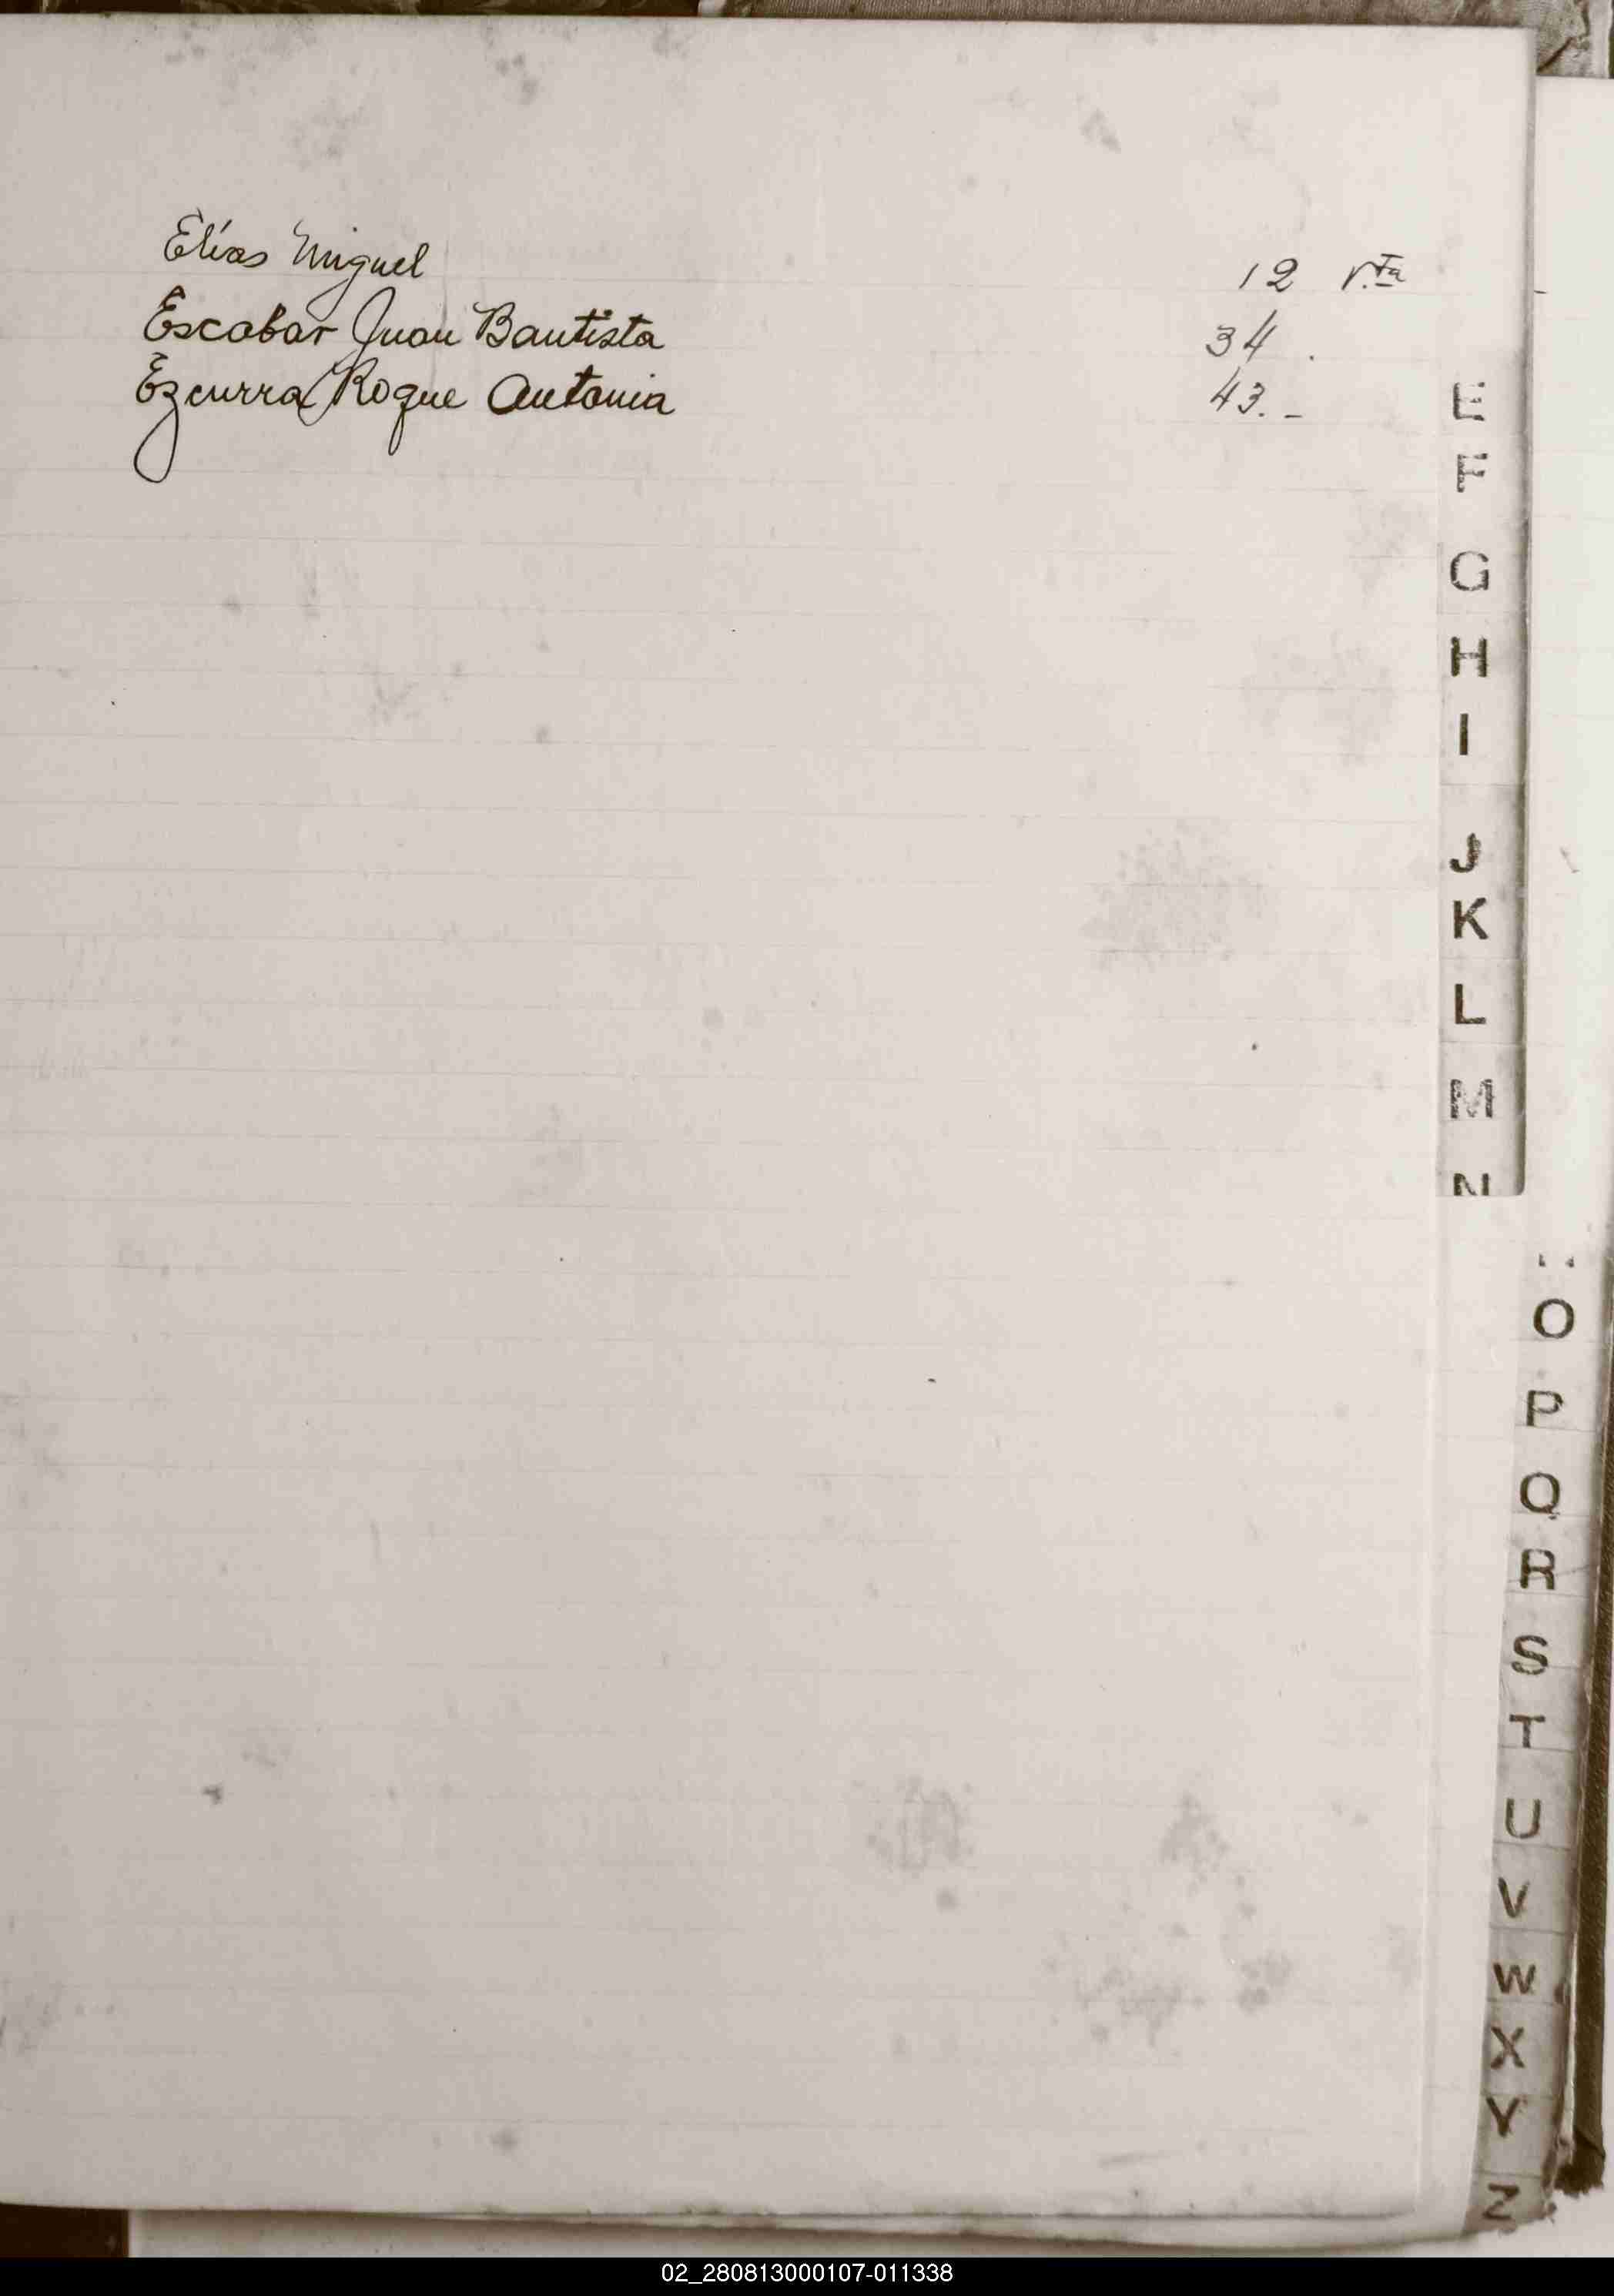 Elías Miguel 12 v.ta
Escobar Juan Bautista 34 .
Ezcurra Roque Antonia 43. -
E
F
G
H
I
J
K
L
M
N
O
P
Q
R
S
T
U
V
W
X
Y
Z
02_280813000107-011338